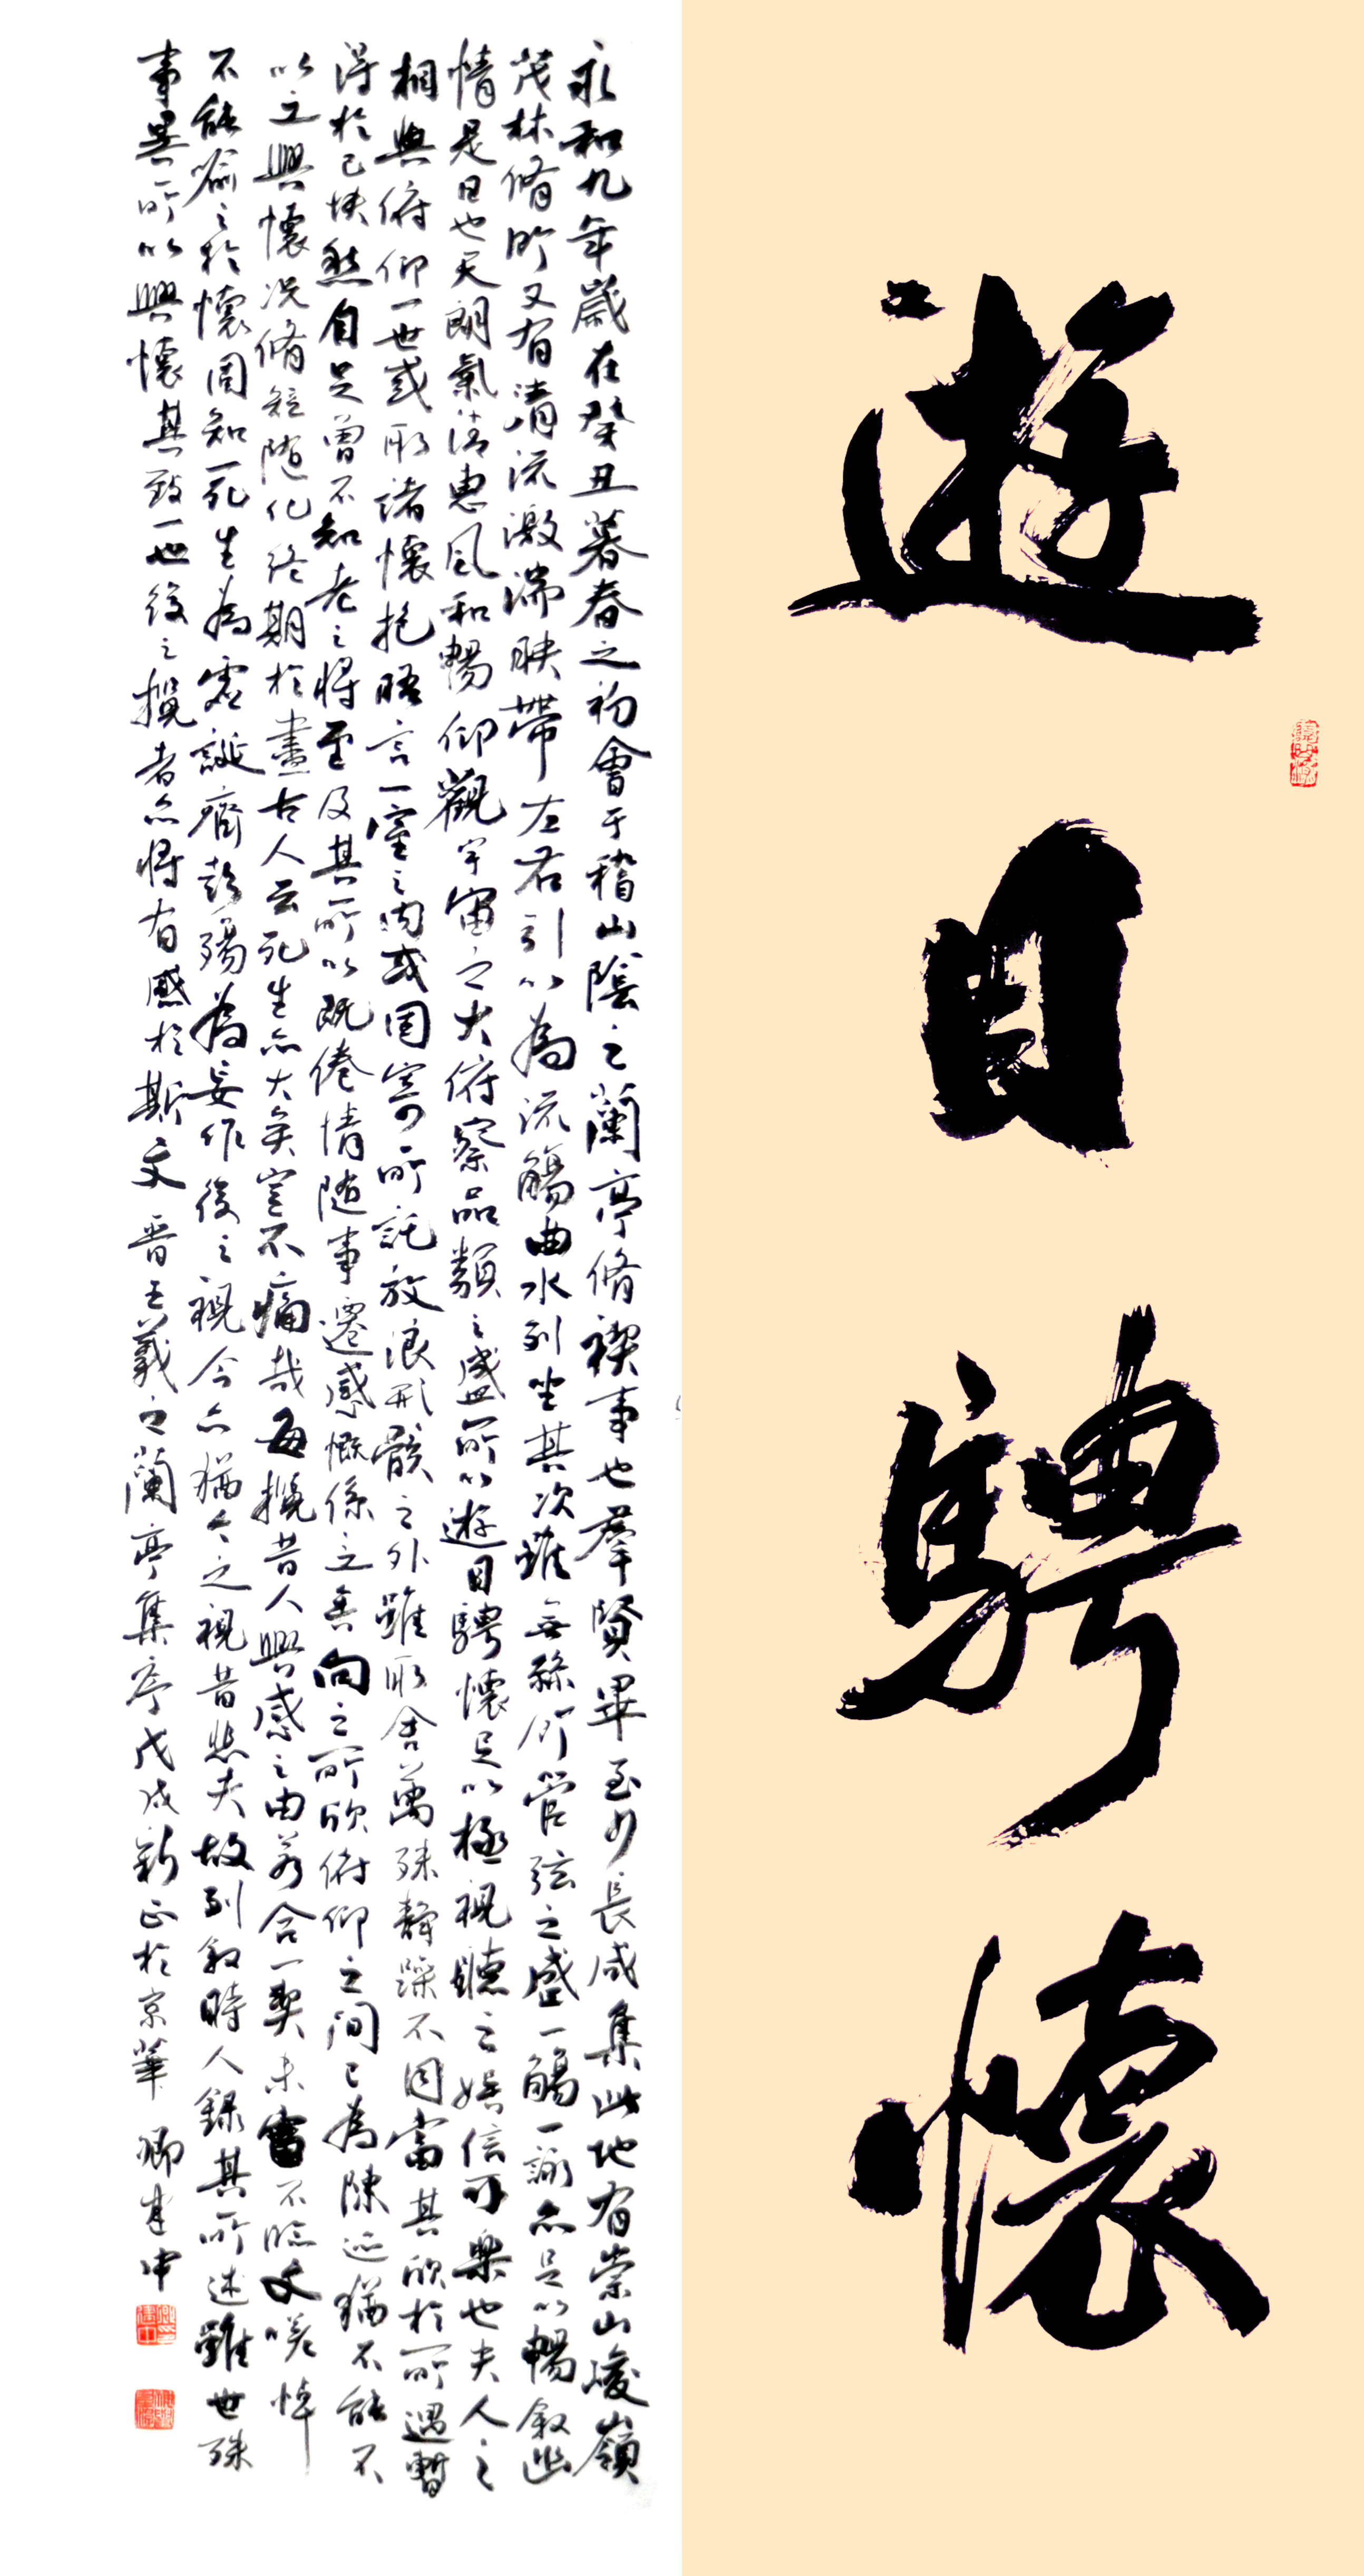 遊目騁懷
永和九年歲在癸丑暮春之初會于稽山陰之蘭亭脩禊事也羣賢畢至少長咸集此地有崇山峻嶺
茂林脩竹又有清流激湍映帶左右引以為流觴曲水列坐其次雖無絲竹管弦之盛一觴一詠亦足以暢敘幽
情是日也天朗氣清惠風和暢仰觀宇宙之大俯察品類之盛所以遊目騁懷足以極視聽之娛信可樂也夫人之
相與俯仰一世或取諸懷抱晤言一室之內或因寄所託放浪形骸之外雖取舍萬殊靜躁不同當其欣於所遇暫
得於己怏然自足曾不知老之將至及其所以既倦情隨事遷感慨係之矣向之所欣俯仰之間已為陳迹猶不能不
以之興懷況脩短隨化終期於盡古人云死生亦大矣豈不痛哉每攬昔人興感之由若合一契未嘗不臨文嗟悼
不能喻之於懷固知一死生為虛誕齊彭殤為妄作後之視今亦猶今之視昔悲夫故列敘時人錄其所述雖世殊
事異所以興懷其致一也後之攬者亦將有感於斯文 晉王羲之蘭亭集序戊戌新正於京華 卿建中